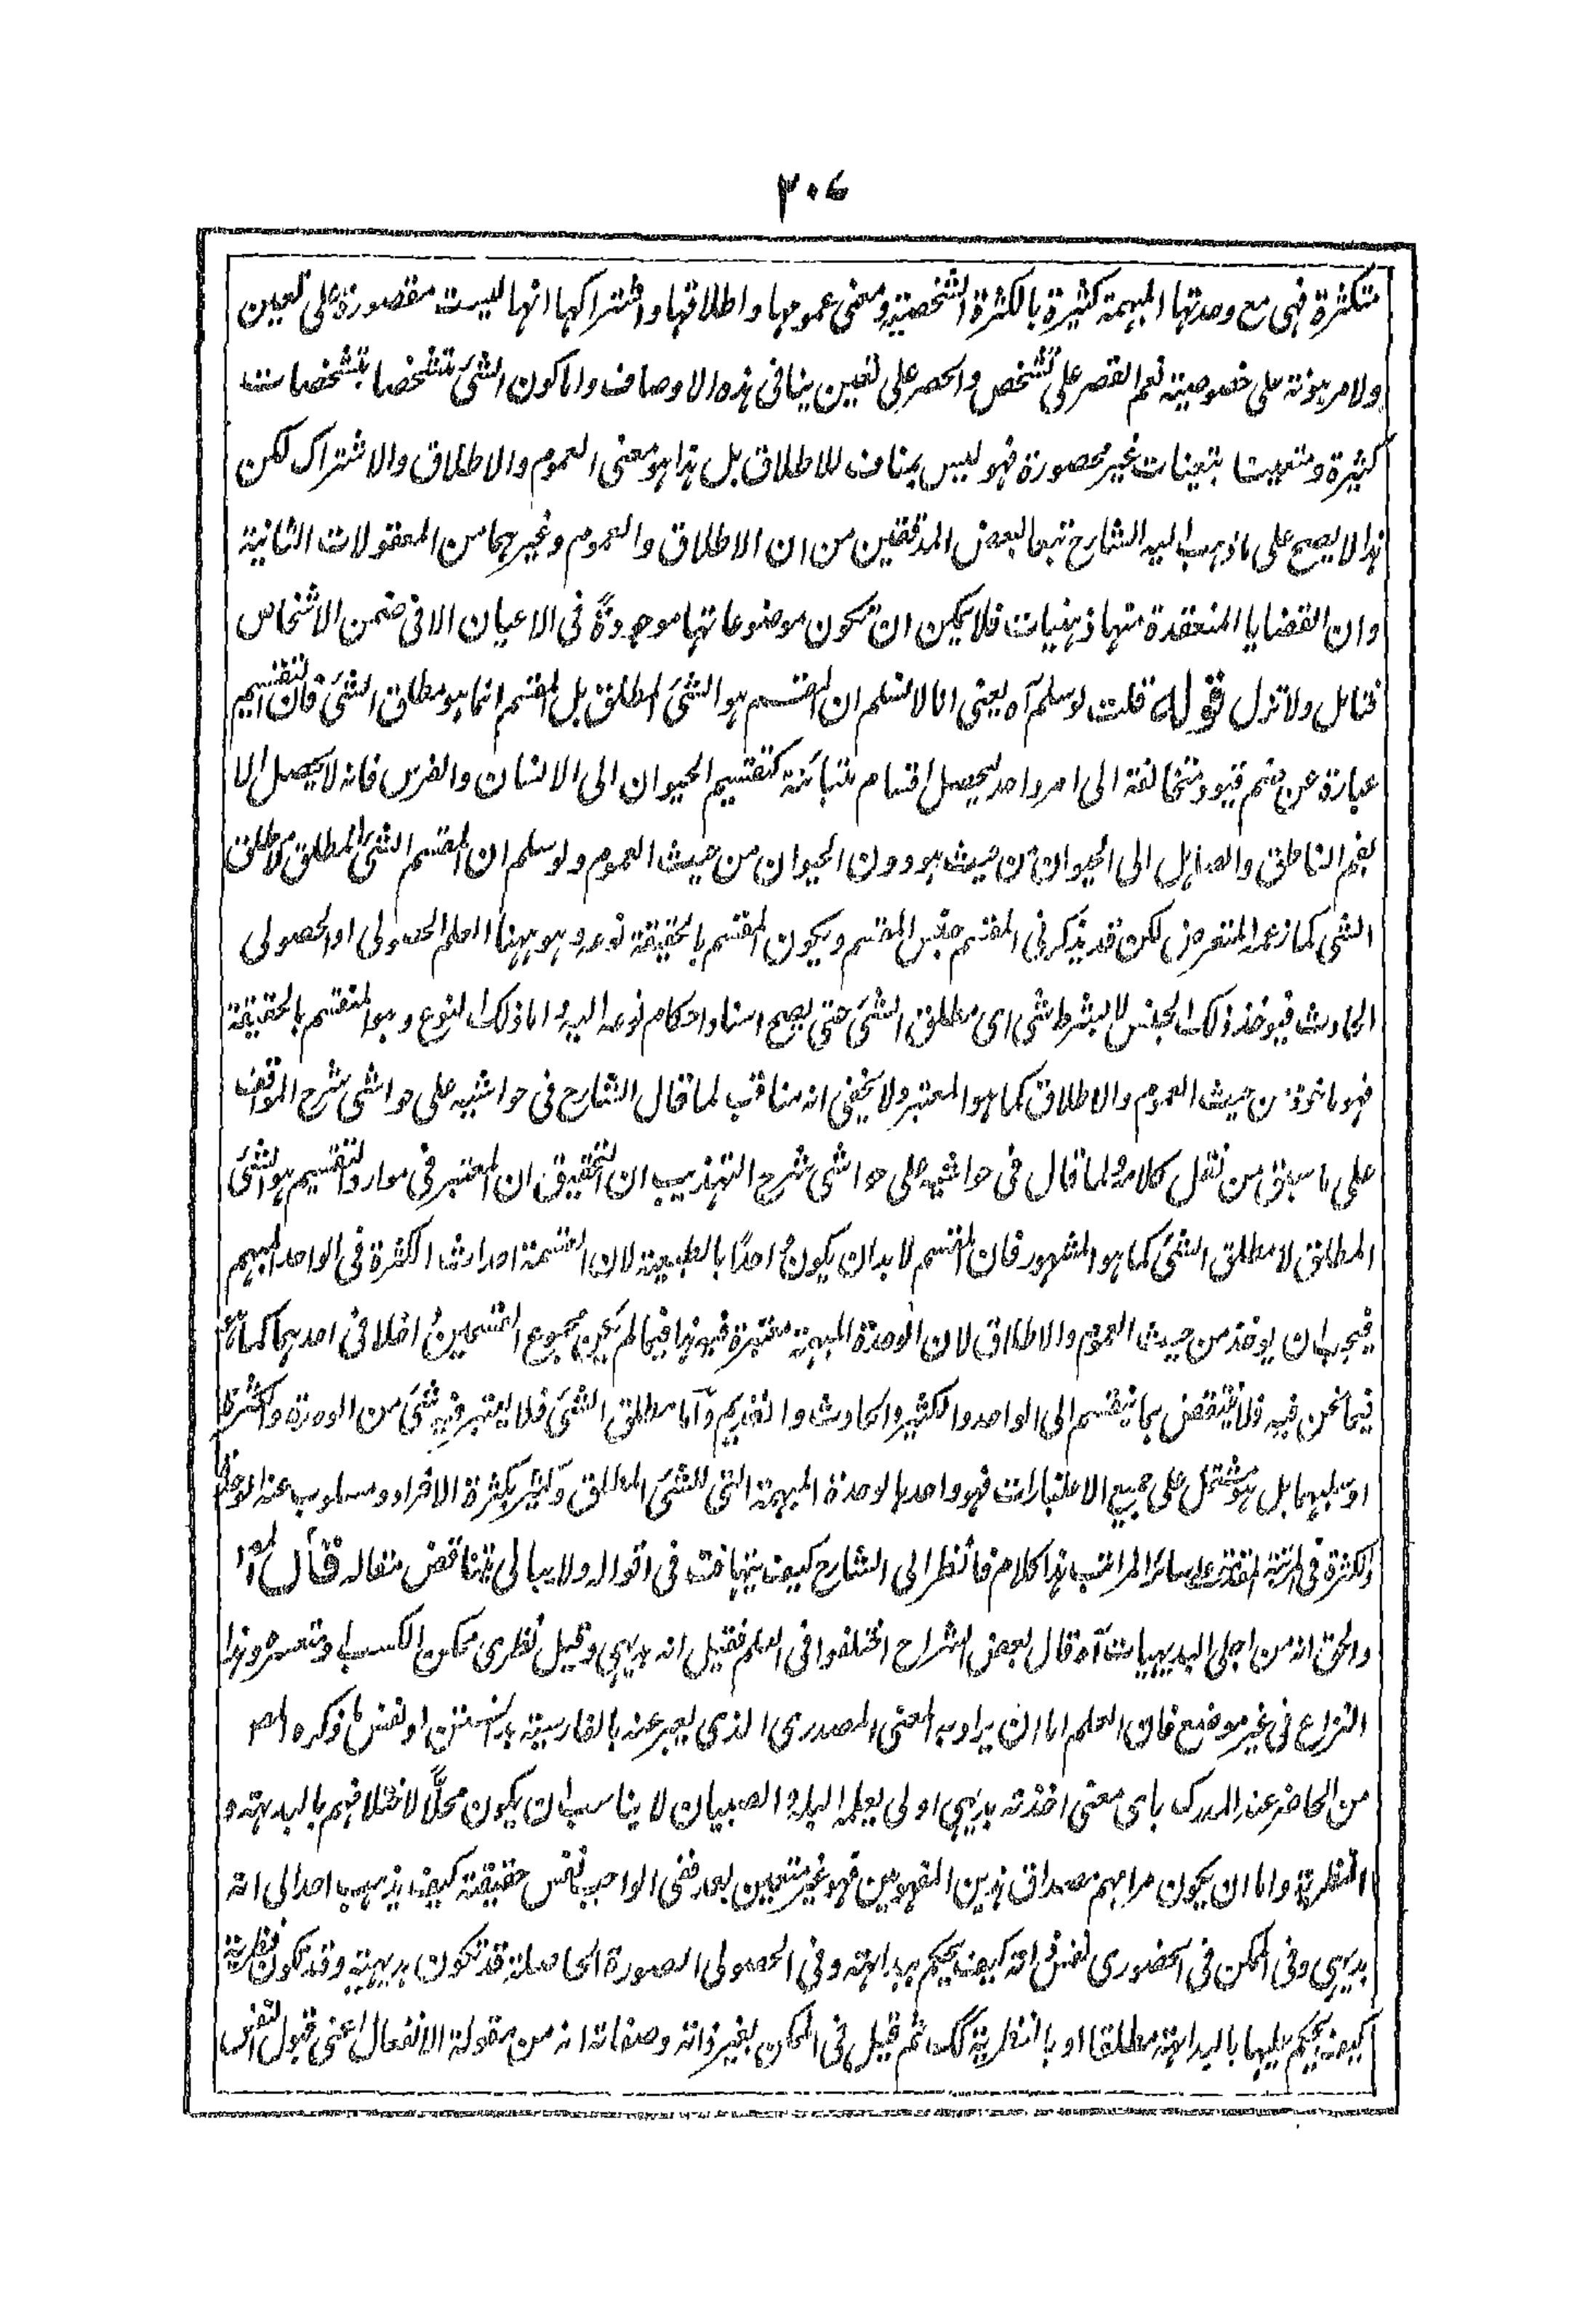 ٣٠٧
متكثرة فهى مع وحدتها المبهمة كثيرة بالكثرة الشخصية ومعنى عمومها واطلاقها واشتراكها انها ليست مقصورة على تعين
ولا مرهونة على خصوصية نعم القصر على تشخص والحصر على تعين ينافى هذه الاوصاف واما كون الشئ متشخصا بتشخصات
كثيرة ومتعينا بتعينات غير محصورة فهو ليس بمناف للاطلاق بل هذا هو معنى العموم والاطلاق والاشتراك لكن
هذا لا يصح على ما ذهب اليه الشارح تبعا لبعض المدققين من ان الاطلاق والعموم وغيرهما من المعقولات الثانية
وان القضايا المنعقدة منها ذهنيات فلا يمكن ان تكون موضوعاتها موجودةً فى الاعيان الا فى ضمن الاشخاص
فتامل ولا تزل قوله قلت لو سلم آه يعنى انا لا نسلم ان المقسم هو الشئ المطلق بل المقسم انما هو مطلق الشئ فان التقسيم
عبارة عن ضم قيود متخالفة الى امر واحد ليحصل اقسام متباينة كتقسيم الحيوان الى الانسان والفرس فانه لا يحصل الا
بضم الناطق والصاهل الى الحيوان من حيث هو دون الحيوان من حيث العموم ولو سلم ان المقسم الشئ المطلق لا مطلق
الشئ كما زعمه المتعرض لكن قد يذكر فى المقسم جنس المقسم ويكون المقسم بالحقيقة نوعه وهو ههنا العلم الحصولى او الحصولى
الحادث فيوخذ ذلك الجنس لا بشرط شئ اى مطلق الشئ حتى يصح اسناد احكام نوعه اليه واما ذلك النوع وهو المنقسم بالحقيقة
فهو ماخوذ من حيث العموم والاطلاق كما هو المعتبر ولا يخفى انه مناقب لما قال الشارح فى حواشيه على حواشى شرح المواقف
على ما سبق من نقل كلامه ولما قال فى حواشيه على حواشى شرح التهذيب ان التحقيق ان المعتبر فى موارد التقسيم هو الشئ
المطلق لا مطلق الشئ كما هو المشهور فان المقسم لا بد ان يكون واحدًا بالطبيعة لان القسمة احداث الكثرة فى الواحد المبهم
فيجب ان يوخذ من حيث العموم والاطلاق لان الوحدة المبهمة معتبرة فيه وهذا فيما لم يكن مجموع القسمين داخلا فى احدهما كما
فيما نحن فيه فلا ينتقض بما ينقسم الى الواحد والكثير والحادث والقديم وآما مطلق الشئ فلا يعتبر فيه شئ من الوحدة والكثرة
او سلبهما بل هو مشتمل على جميع الاعتبارات فهو واحد بالوحدة المبهمة التى للشئ المطلق وكثير بكثرة الافراد ومسلوب عنه الوحدة
والكثرة فى المرتبة المتقدمة على سائر المراتب هذا كلامه فانظر الى الشارح كيف يتهافت فى اقواله ولا يبالى بتناقض مقاله قال المصنف
والحق انه من اجلى البديهيات آه قال بعض الشراح اختلفوا فى العلم فقيل انه بديهى وقيل نظرى ممكن الكسب او متعسره وهذا
النزاع فى غير موضعه فان العلم اما ان يراد به المعنى المصدرى الذى يعبر عنه بالفارسية بدانستن او نفس ما ذكره المص
من الحاضر عند المدرك باى معنى اخذته بديهى اولى يعلمه البله والصبيان لا يناسب ان يكون محلًّا لاختلافهم بالبديهة و
النظرية واما ان يكون مرادهم مصداق هذين المفهومين فهو غير متعين بعد ففى الواجب نفس حقيقته كيف يذهب احد الى انه
بديهى وفى الممكن فى الحضورى نفس ذاته كيف يحكم ببداهته وفى الحصولى الصورة الحاصلة قد تكون بديهية وقد تكون نظرية
كيف يحكم عليها بالبداهة مطلقا او بالنظرية كك ثم قيل فى الممكن بغير ذاته وصفاته انه من مقولة الانفعال اعنى قبول النفس